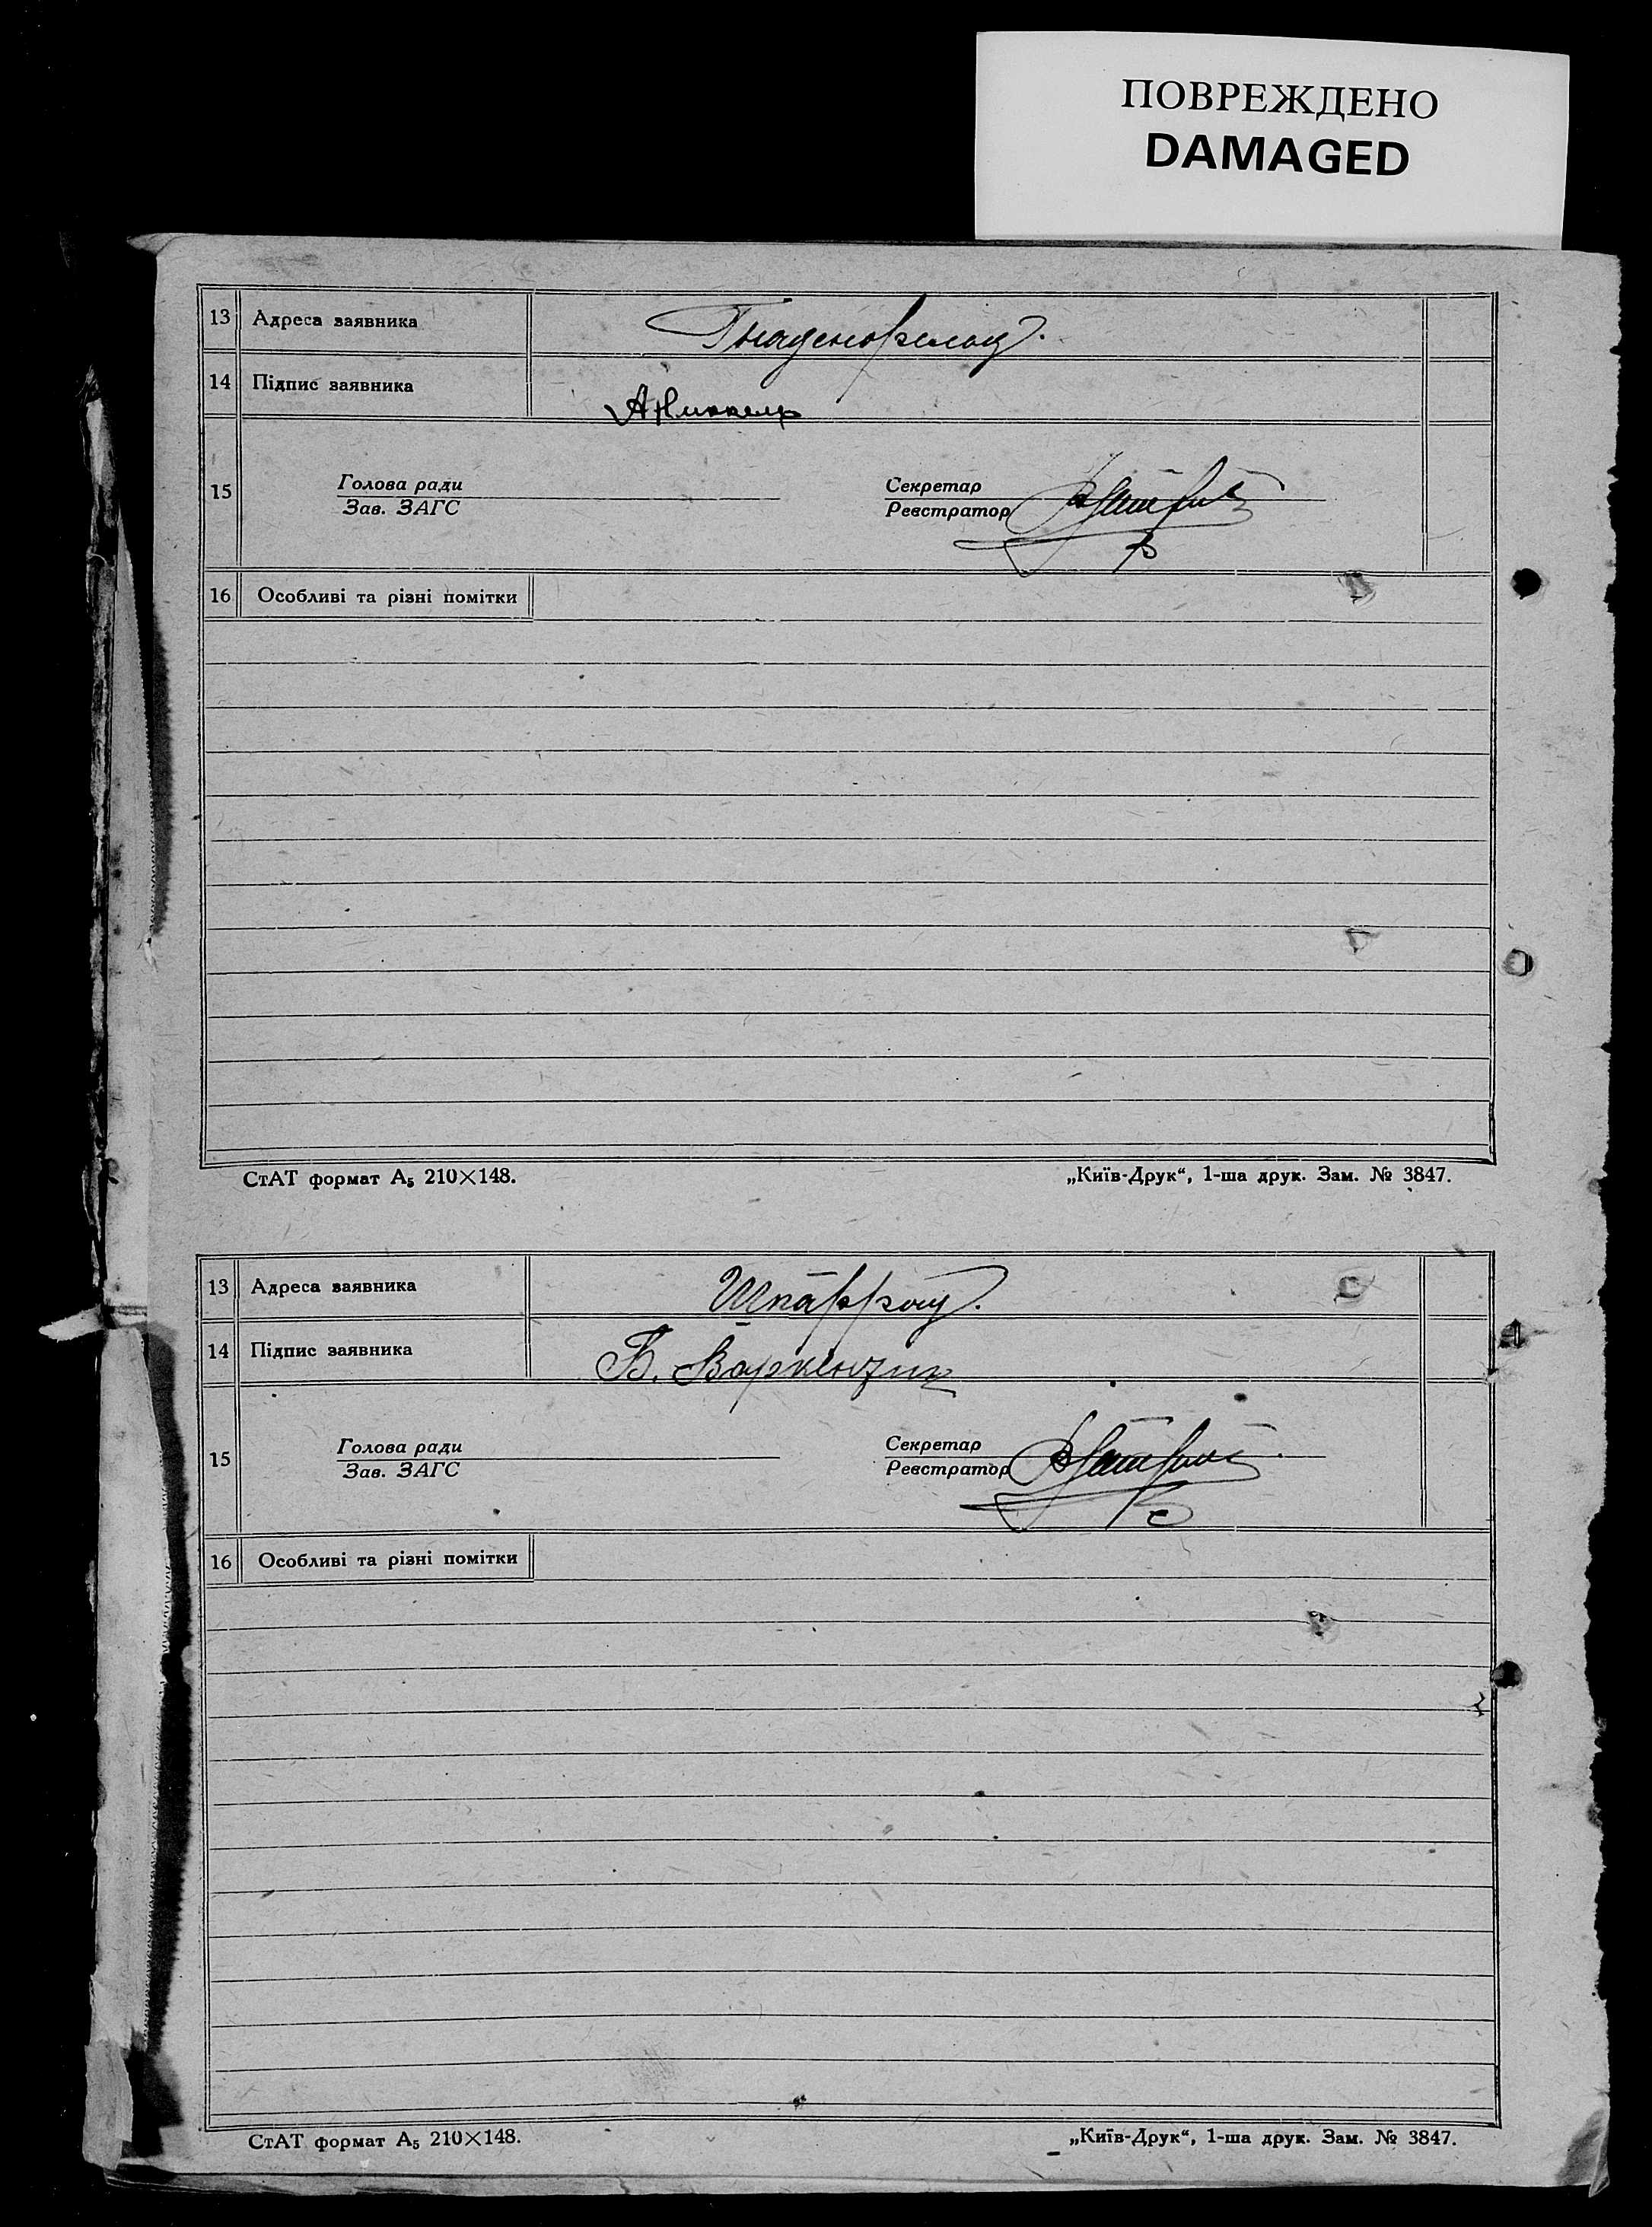 ПОВРЕЖДЕНО
DAMAGED
13 Адреса заявника Гнаденфельд.
14 Підпис заявника А Никкель
15 Голова ради Секретар
Зав. ЗАГС Реєстратор
16 Особливі та різні помітки
СтАТ формат А₅ 210×148. „Київ-Друк“, 1-ша друк. Зам. № 3847.
13 Адреса заявника Шпаррау.
14 Підпис заявника Б. Варкентин
15 Голова ради Секретар
Зав. ЗАГС Реєстратор
16 Особливі та різні помітки
СтАТ формат А₅ 210×148. „Київ-Друк“, 1-ша друк. Зам. № 3847.